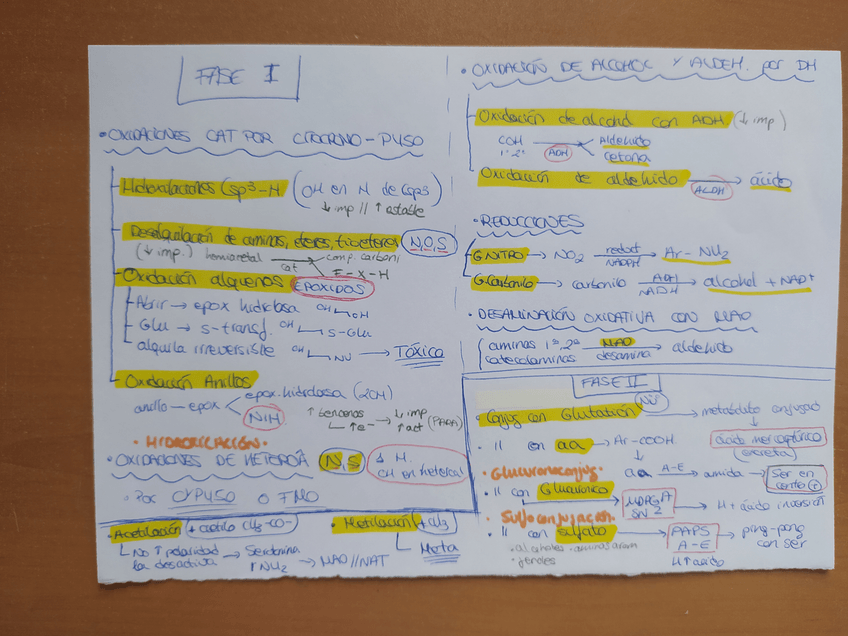 FASE I
• OXIDACIONES CAT POR CITOCROMO-P450
Hidroxilaciones (sp3-H (OH en H de Csp3)
↓ imp // ↑ estable
Desalquilación de aminas, éteres, tioéteres (N,O,S)
(↓ imp.) hemiacetal → comp. carboni
cat → E-X-H
Oxidación alquenos EPÓXIDOS
Abrir → epox hidrolasa OH OH
Glu → s-transf. OH S-Glu
alquila irreversible OH NU → TÓXICA
Oxidación Anillos
anillo — epox < epox. hidrolasa (2OH)
NIH
↑ bencenos → ↓ imp
↳ ↑ e- ↑ act (PARA)
• HIDROXILACIÓN •
• OXIDACIONES DE HETEROÁ N,S
• Por CYP450 O FMO
• Acetilación + acetilo CH3-CO-
↳ No ↑ polaridad
la desactiva → Serotonina
↑ NH2 → MAO // NAT
• Metilación + CH3
↳ Meta
• OXIDACIÓN DE ALCOHOL Y ALDEH. por DH
Oxidación de alcohol con ADH (↓ imp.)
COH → Aldehído
1ª 2ª ADH cetona
Oxidación de aldehído → ácido
ALDH
• REDUCCIONES
G. NITRO → NO2 reduct → Ar-NH2
NADPH
G. Carbonilo → carbonilo ADH → alcohol + NAD+
NADH
• DESAMINACIÓN OXIDATIVA CON MAO
aminas 1ª, 2ª MAO → aldehído
catecolaminas desamina
FASE II
• Conjug con Glutatión → metabolito conjugad
ácido mercaptúrico
(excreta)
• " con aa → Ar-COOH
aa A-E → amida → Ser en
• Glucuronoconjug.
• " con Glucurónico → UDPGA → H+ ácido inversión
SN2
• Sulfoconjugación.
• " con sulfato → PAPS → ping-pong
A-E con ser
• alcoholes • aminas arom
• fenoles H ↑ ácido